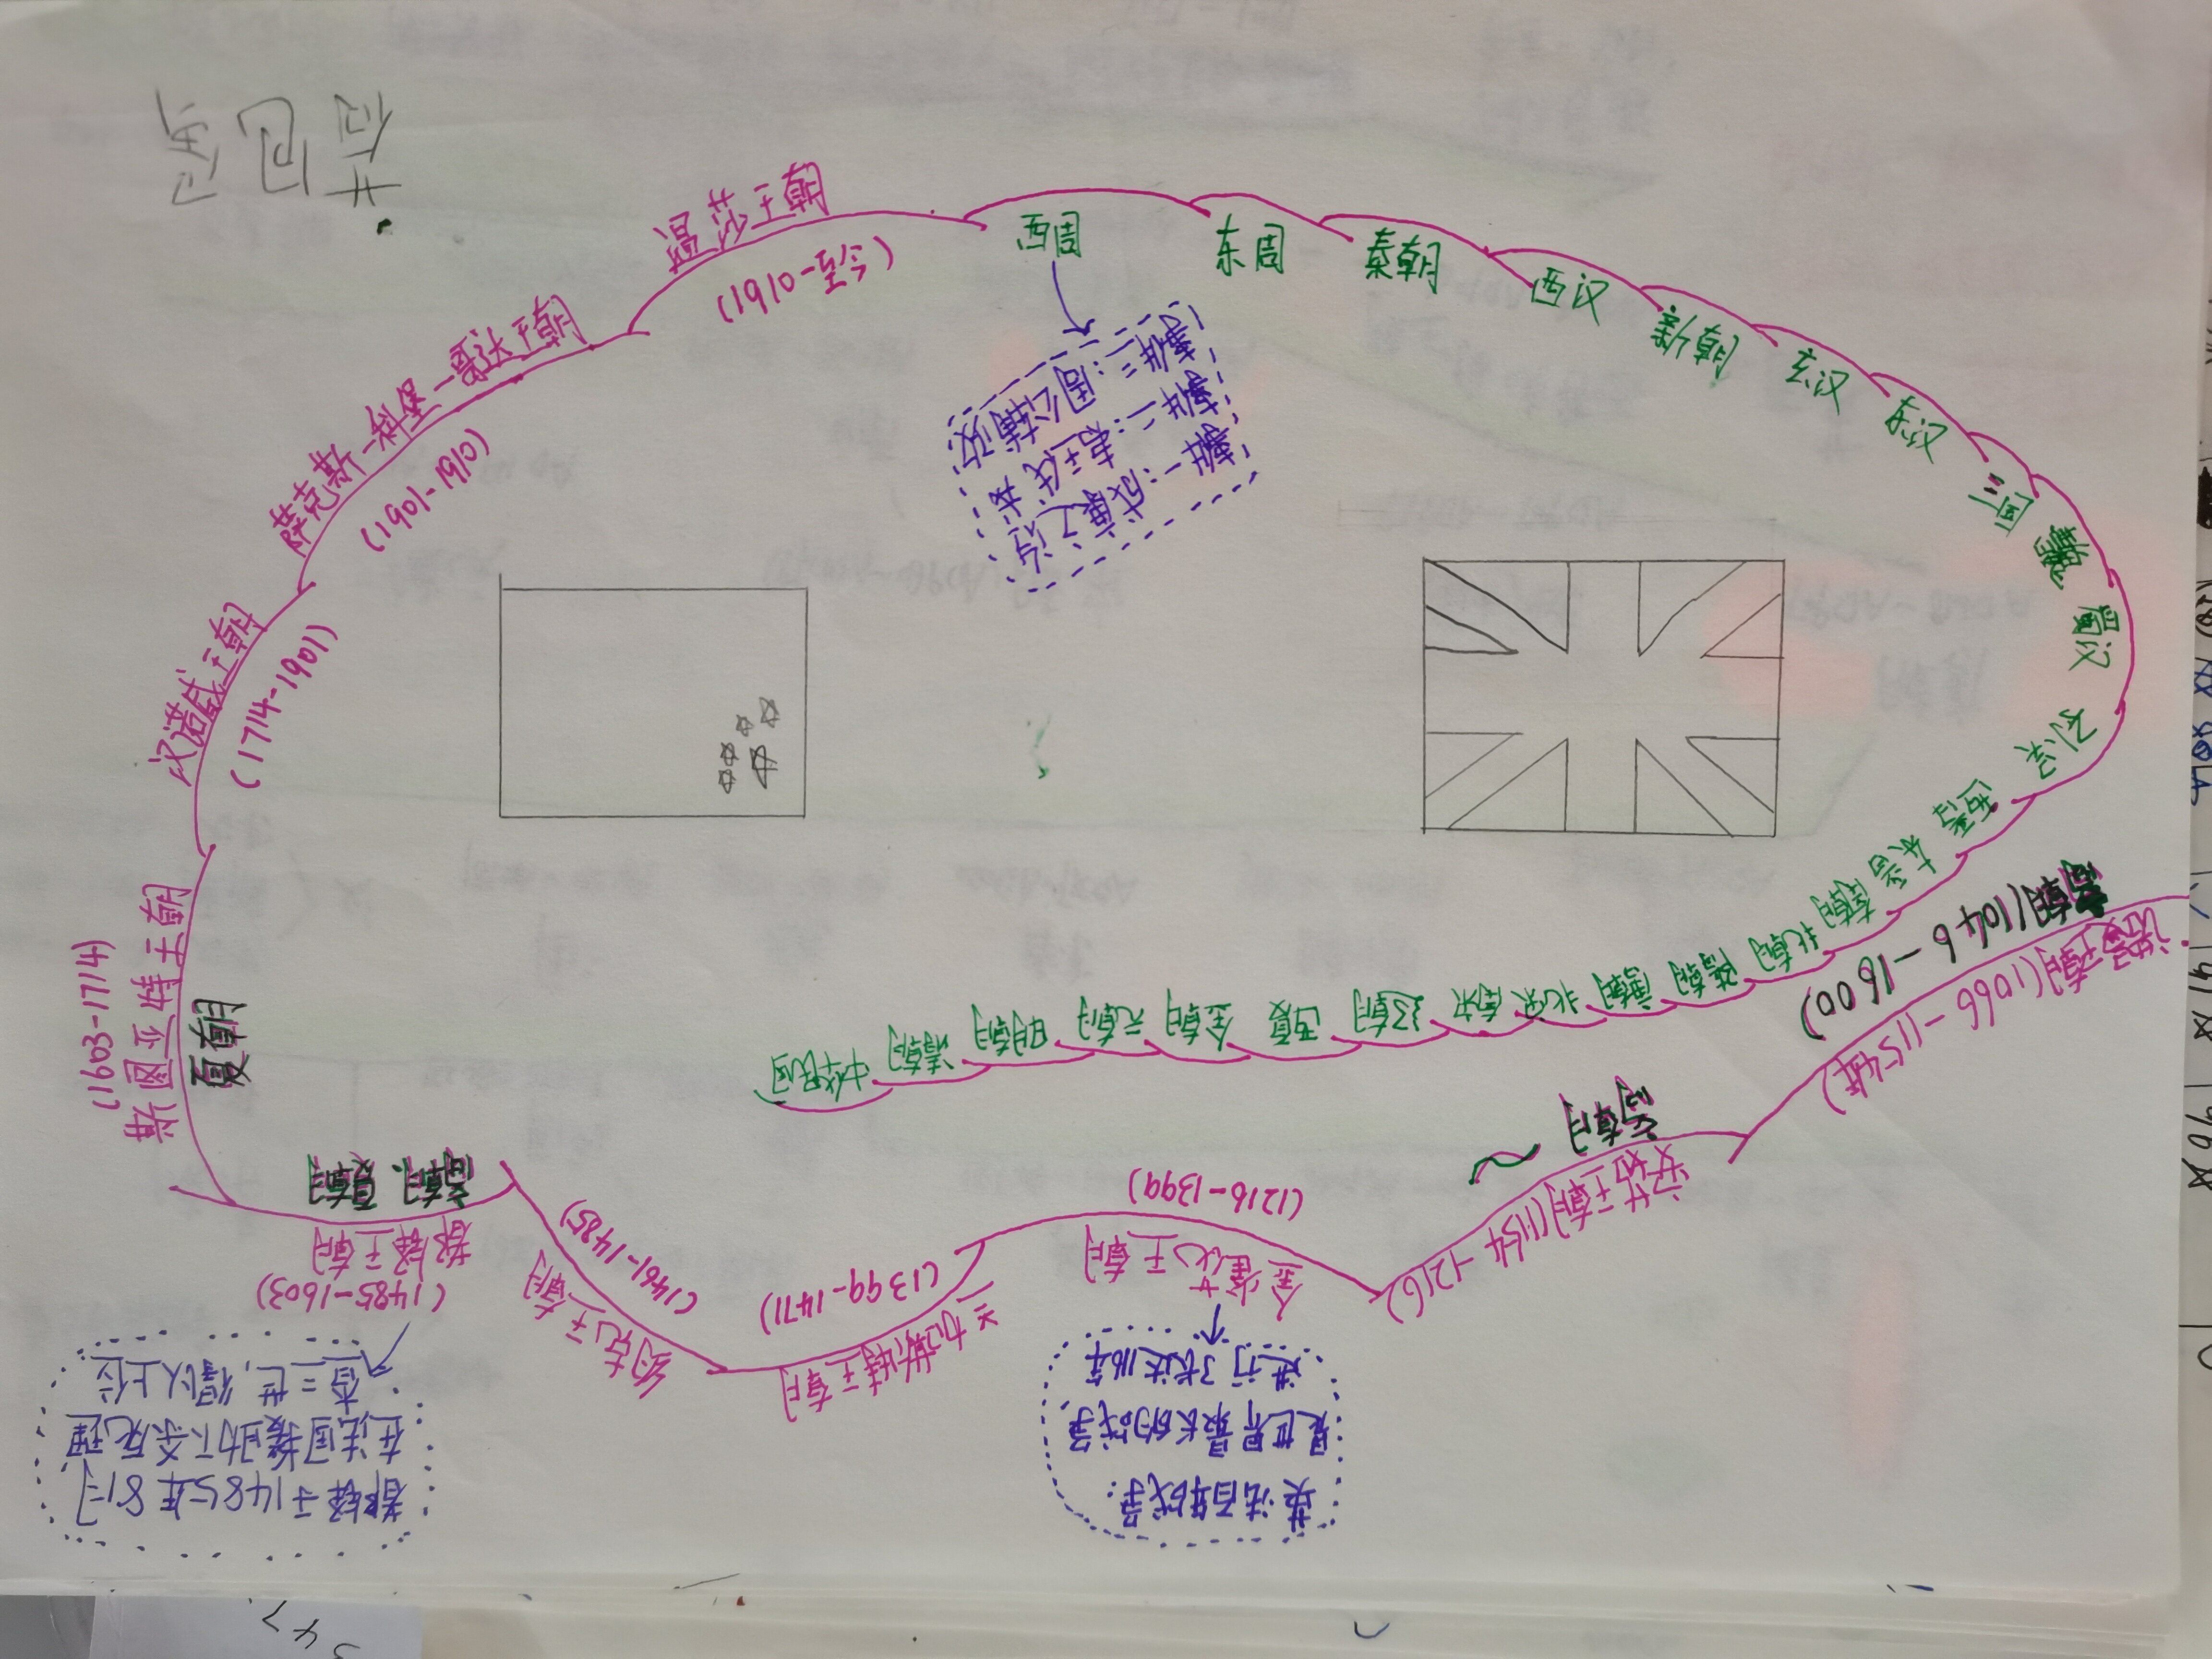 荷包蛋
诺曼王朝(1066-1154年)
安茹王朝(1154-1216)
金雀花王朝
(1216-1399)
英法百年战争:
是世界最长的战争,
进行了长达116年
兰加斯特王朝
(1399-1471)
约克王朝
(1461-1485)
都铎王朝
(1485-1603)
都铎于1485年8月
在法国援助下杀死理
查三世,得以上位
斯图亚特王朝
(1603-1714)
夏朝
汉诺威王朝
(1714-1901)
萨克斯-科堡-哥达王朝
(1901-1910)
温莎王朝
(1910-至今)
西周
事件一:成康之治
事件三:周公辅政
东周
秦朝
西汉
新朝
玄汉
东汉
三国
蜀汉
孙吴
西晋
东晋
南朝
北朝
隋朝
唐朝
北宋
南宋
辽朝
西夏
金朝
元朝
明朝
清朝
中华民国
(1046-1600)